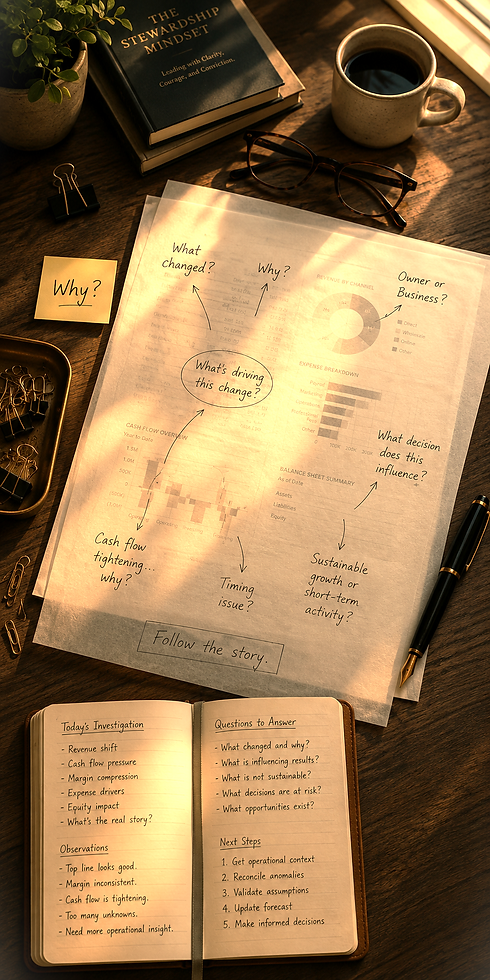 THE
STEWARDSHIP
MINDSET
Leading with Clarity,
Courage, and Conviction.
Why?
What
changed?
Why?
Owner or
Business?
REVENUE BY CHANNEL
Direct
Wholesale
Online
Other
What's driving
this change?
EXPENSE BREAKDOWN
Payroll
Marketing
Other
What decision
does this
influence?
CASH FLOW OVERVIEW
Year to Date
1.5M
1.0M
500K
BALANCE SHEET SUMMARY
As of Date
Assets
Liabilities
Equity
Cash flow
tightening...
why?
Timing
issue?
Sustainable
growth or
short-term
activity?
Follow the story.
Today's Investigation
- Revenue shift
- Cash flow pressure
- Margin compression
- Expense drivers
- Equity impact
- What's the real story?
Observations
- Top line looks good.
- Margin inconsistent.
- Cash flow is tightening.
- Too many unknowns.
- Need more operational insight.
Questions to Answer
- What changed and why?
- What is influencing results?
- What is not sustainable?
- What decisions are at risk?
- What opportunities exist?
Next Steps
1. Get operational context
2. Reconcile anomalies
3. Validate assumptions
4. Update forecast
5. Make informed decisions